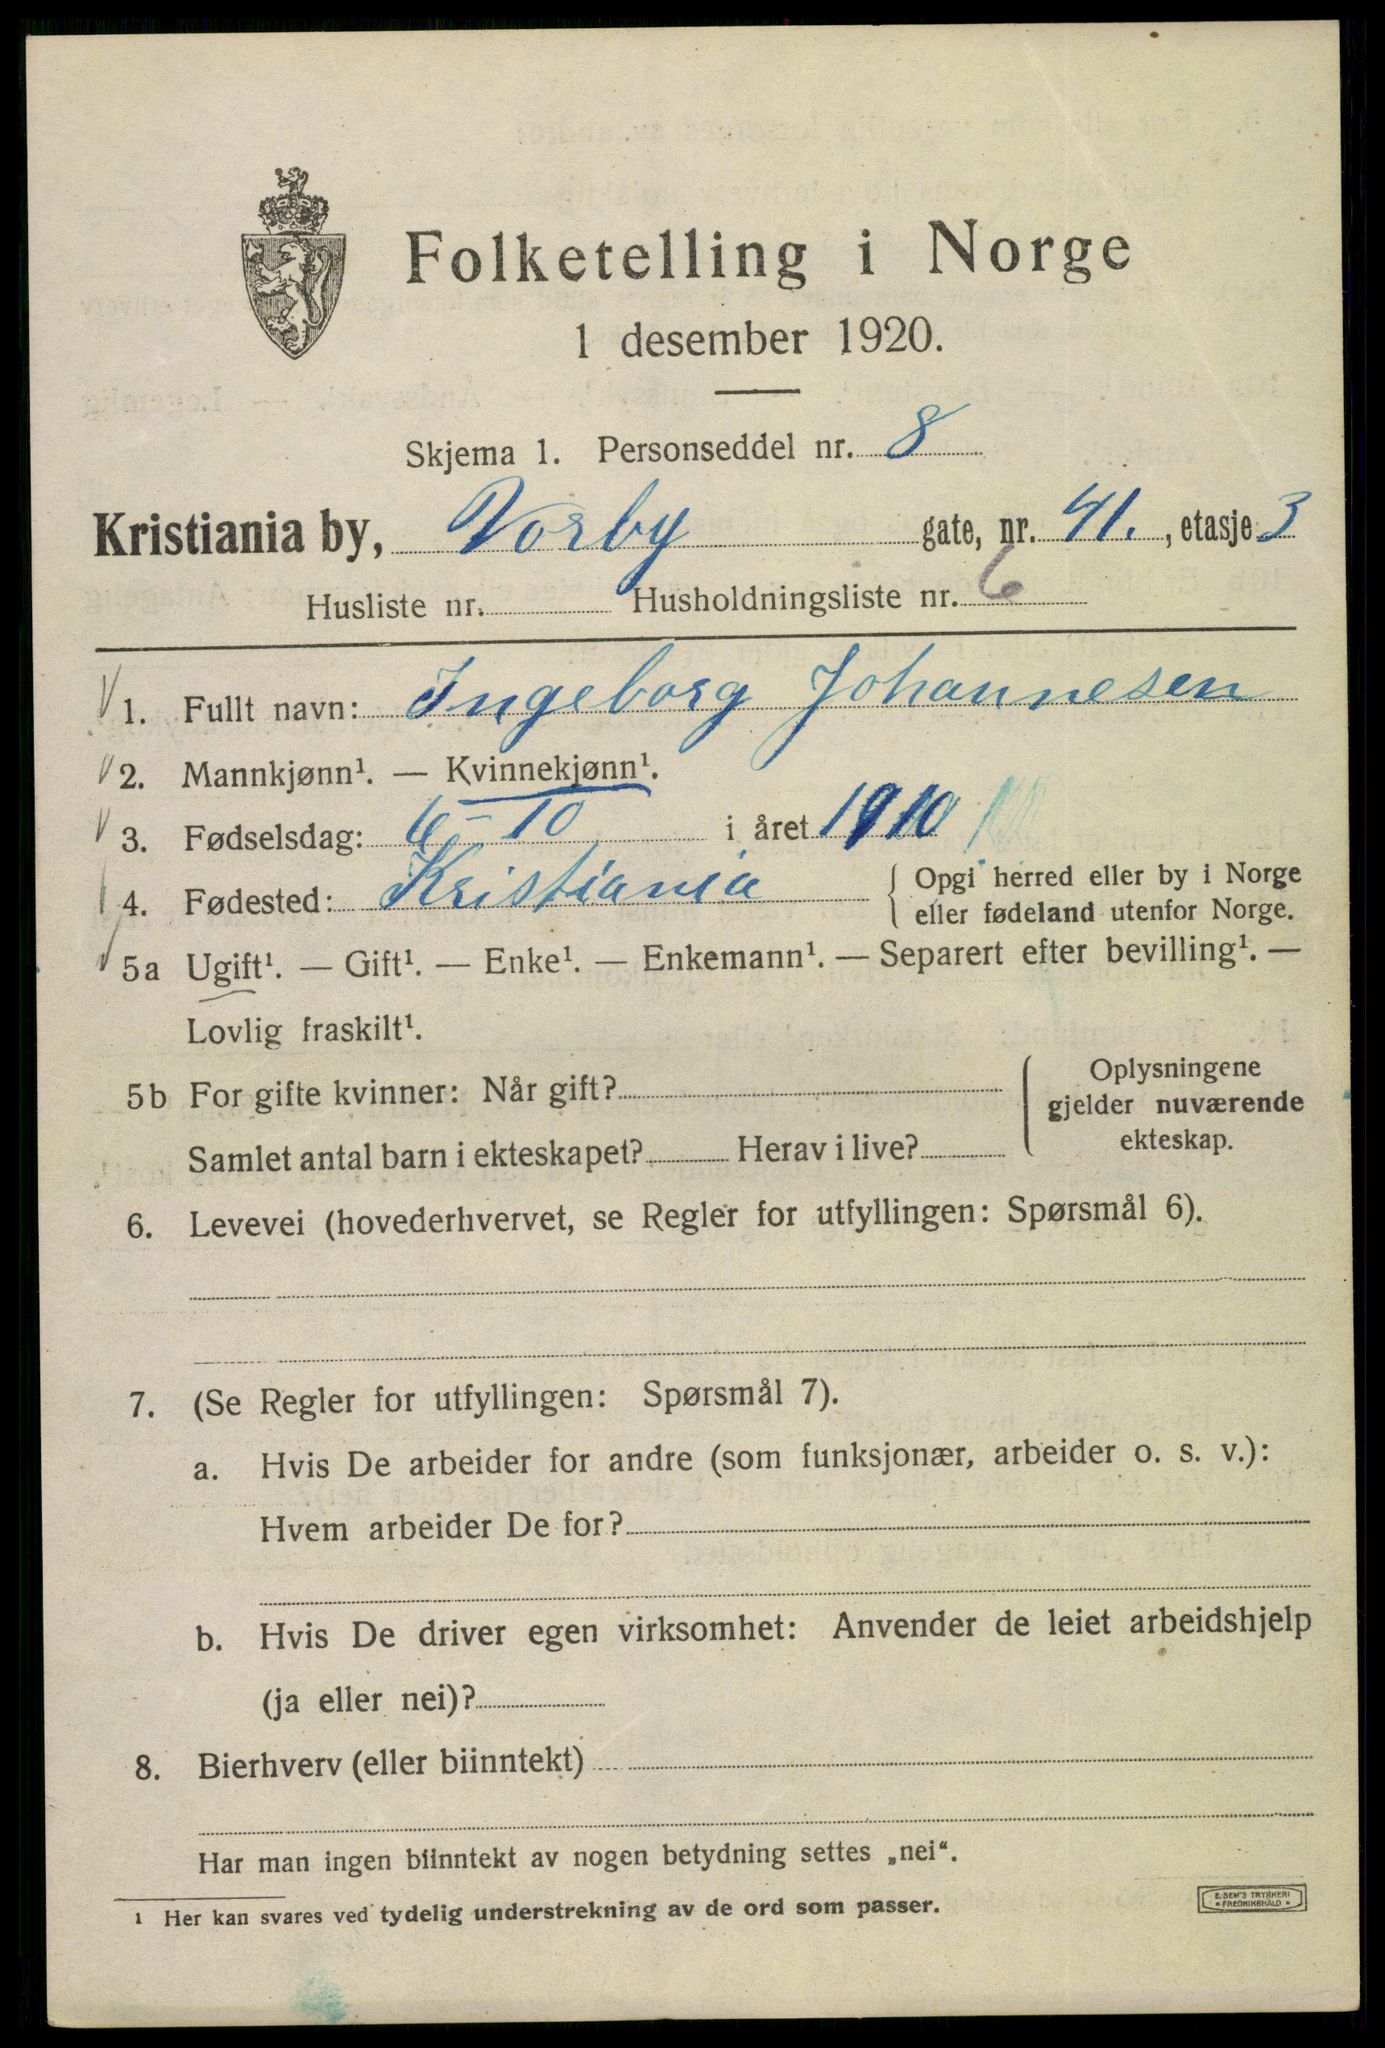 Folketelling i Norge
1 desember 1920.
Skjema 1. Personseddel nr. 8
Kristiania by, Vorby gate, nr. 41., etasje 3
Husliste nr. Husholdningsliste nr. 6
1. Fullt navn: Ingeborg Johannesen
2. Mannkjønn¹. — Kvinnekjønn¹.
3. Fødselsdag: 6 - 10 i året 1910
4. Fødested: Kristiania { Opgi herred eller by i Norge
eller fødeland utenfor Norge.
5a Ugift¹. — Gift¹. — Enke¹. — Enkemann¹. — Separert efter bevilling¹. —
Lovlig fraskilt¹.
5b For gifte kvinner: Når gift?
Samlet antal barn i ekteskapet? Herav i live?
Oplysningene
gjelder nuværende
ekteskap.
6. Levevei (hovederhvervet, se Regler for utfyllingen: Spørsmål 6).
7. (Se Regler for utfyllingen: Spørsmål 7).
a. Hvis De arbeider for andre (som funksjonær, arbeider o. s. v.):
Hvem arbeider De for?
b. Hvis De driver egen virksomhet: Anvender de leiet arbeidshjelp
(ja eller nei)?
8. Bierhverv (eller biinntekt)
Har man ingen biinntekt av nogen betydning settes „nei“.
1 Her kan svares ved tydelig understrekning av de ord som passer.
E. SEM'S TRYKKERI
• FREDRIKSHALD •